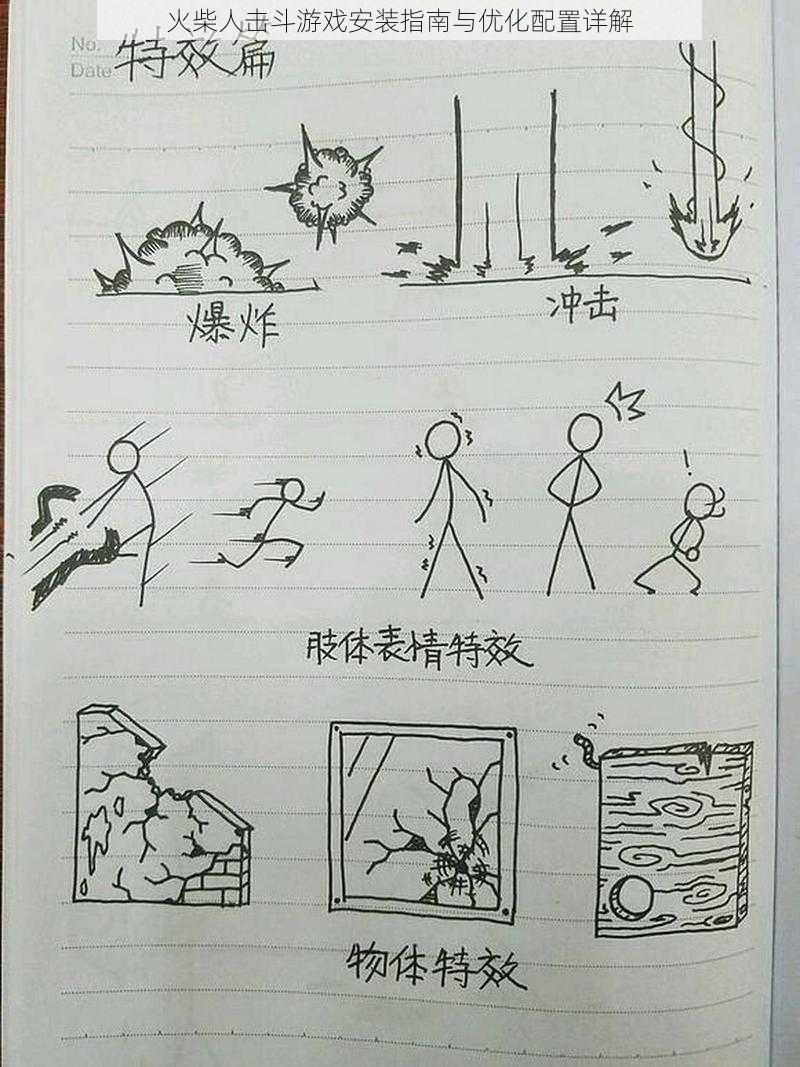 火柴人击斗游戏安装指南与优化配置详解
No.
Date
特效篇
爆炸
冲击
!
肢体表情特效
物体特效